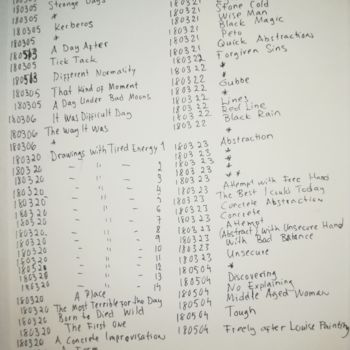 180305 Strange Days
180305 *
180305 Kerberos
180305 *
180305 A Day After
180513 Tick Tack
180305 Different Normality
180513 That Kind of Moment
180305 A Day Under Bad Moons
180305 It Was Difficult Day
180306 The Way It Was
180306 *
180306 Drawings with Tired Energy 1
180320 — " — 2
180320 — " — 3
180320 — " — 4
180320 — " — 5
180320 — " — 6
180320 — " — 7
180320 — " — 8
180320 — " — 9
180320 — " — 10
180320 — " — 11
180320 — " — 12
180320 — " — 13
180320 — " — 14
180320 A Place
180320 The Most Terrible for the Day
180320 Born to Died Wild
180320 The First One
180320 A Concrete Improvisation
180321
180321 Stone Cold
180321 Wise Man
180321 Black Magic
180321 Peto
180321 Quick Abstractions
180322 Forgiven Sins
180322 *
180322 Gubbe
180322 *
180322 Lines
180322 Red Line
180322 Black Rain
*
180323 Abstraction
180323 *
180323 *
180323 **
180323 Attempt with Free Hand
180323 The Best I Could Today
180323 Concrete Abstraction
180323 Concrete
180323 Attempt
180323 (Abstract) with Unsecure Hand
180323 With Bad Balance
180323 Unsecure
180504 *
180504 Discovering
180504 No Explaining
180504 Middle Aged Woman
180504 Tough
180504 Freely after Louise